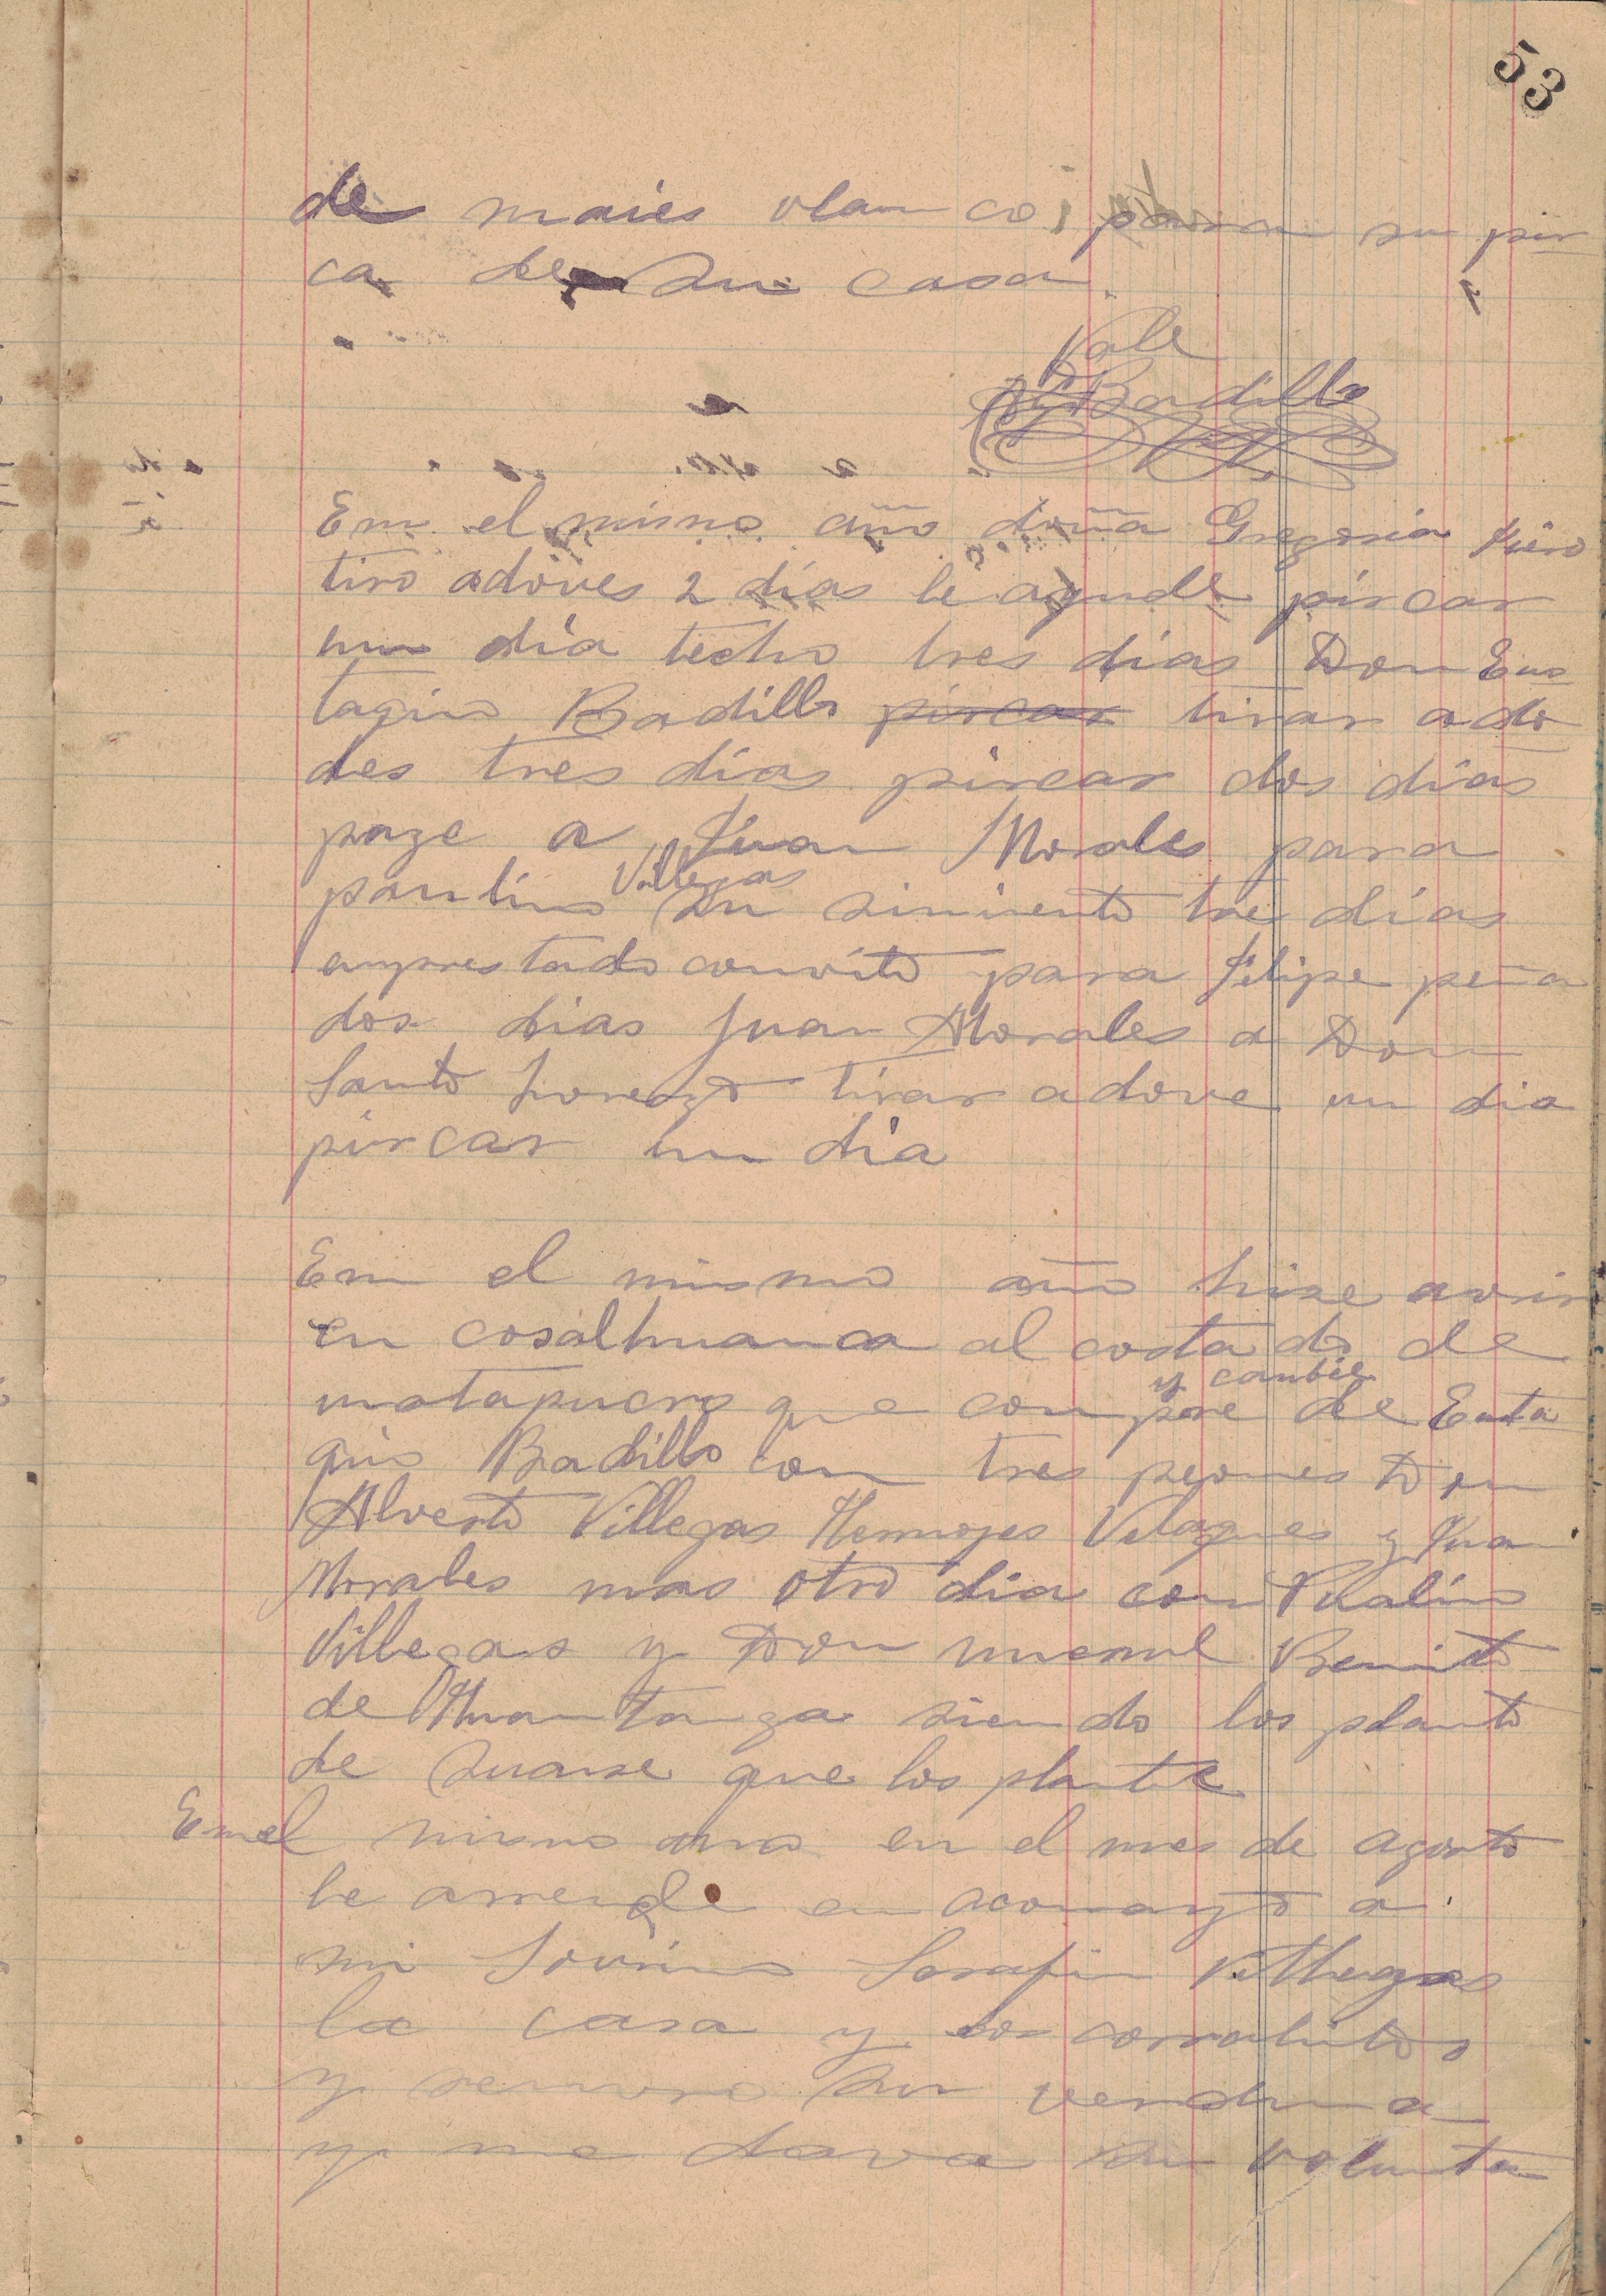 53
de maies vlanco para su pir
ca de su casa.
Vale
Badillo
En el mismo año doña Gregoria
tiro adoves 2 dias le ayude pircar
un dia techo tres dias Don Eus
taqio Badillo pircar tirar ado
des tres dias pircar dos dias
page a Juan Morales para
paulino Villegas su simiento tres dias
emprestado convito para Felipe peña
dos dias Juan Morales a Don
Santo Lorenzo tirar adove un dia
pircar un dia
En el mismo año hise avrir
en cosalhuanca al costado de
matapucro que compre y canbie de Eusta
qio Badillo con tres peones Don
Alverto Villegas Hermojes Velasques y Juan
Morales mas otro dia con
Villegas y Don Benito
de Huantanga siendo los planto
de que los plante
En el mismo año en el mes de agosto
le arrende en acomayo a
mi Sovrino Serafin Villegas
la casa y los corralitos
y su
y me dava su volunta